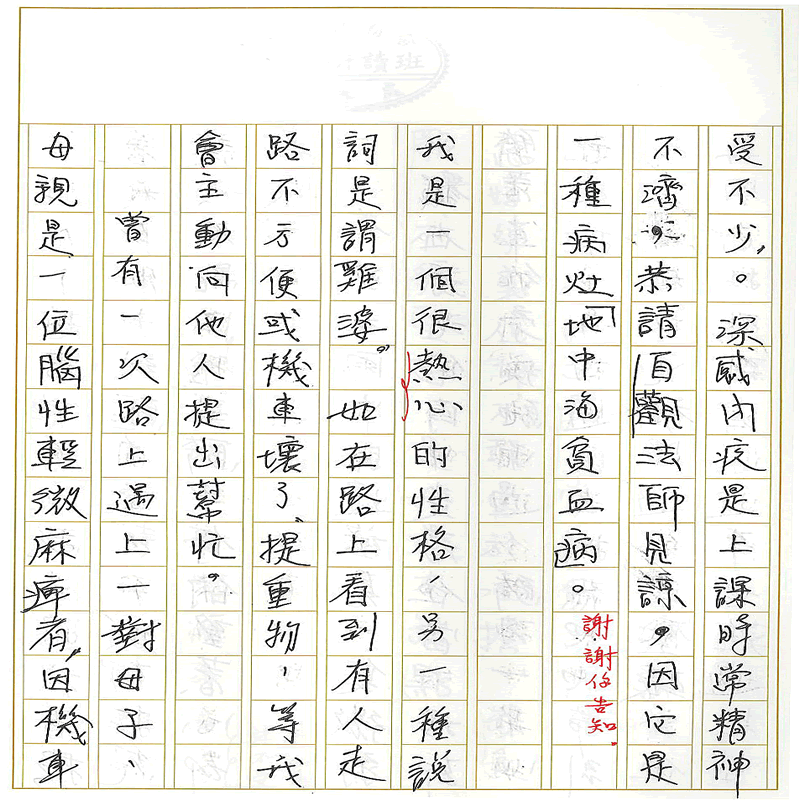 讀班
受不少。深感內疚是上課時常精神
不濟,恭請自觀法師見諒。因它是
一種病灶「地中海貧血病。
謝謝你告知.
我是一個很熱心的性格、另一種說
詞是謂雞婆。如在路上看到有人走
路不方便或機車壞了、提重物,等我
會主動向他人提出幫忙。
曾有一次路上遇上一對母子、
母親是一位腦性輕微麻痺者,因機車